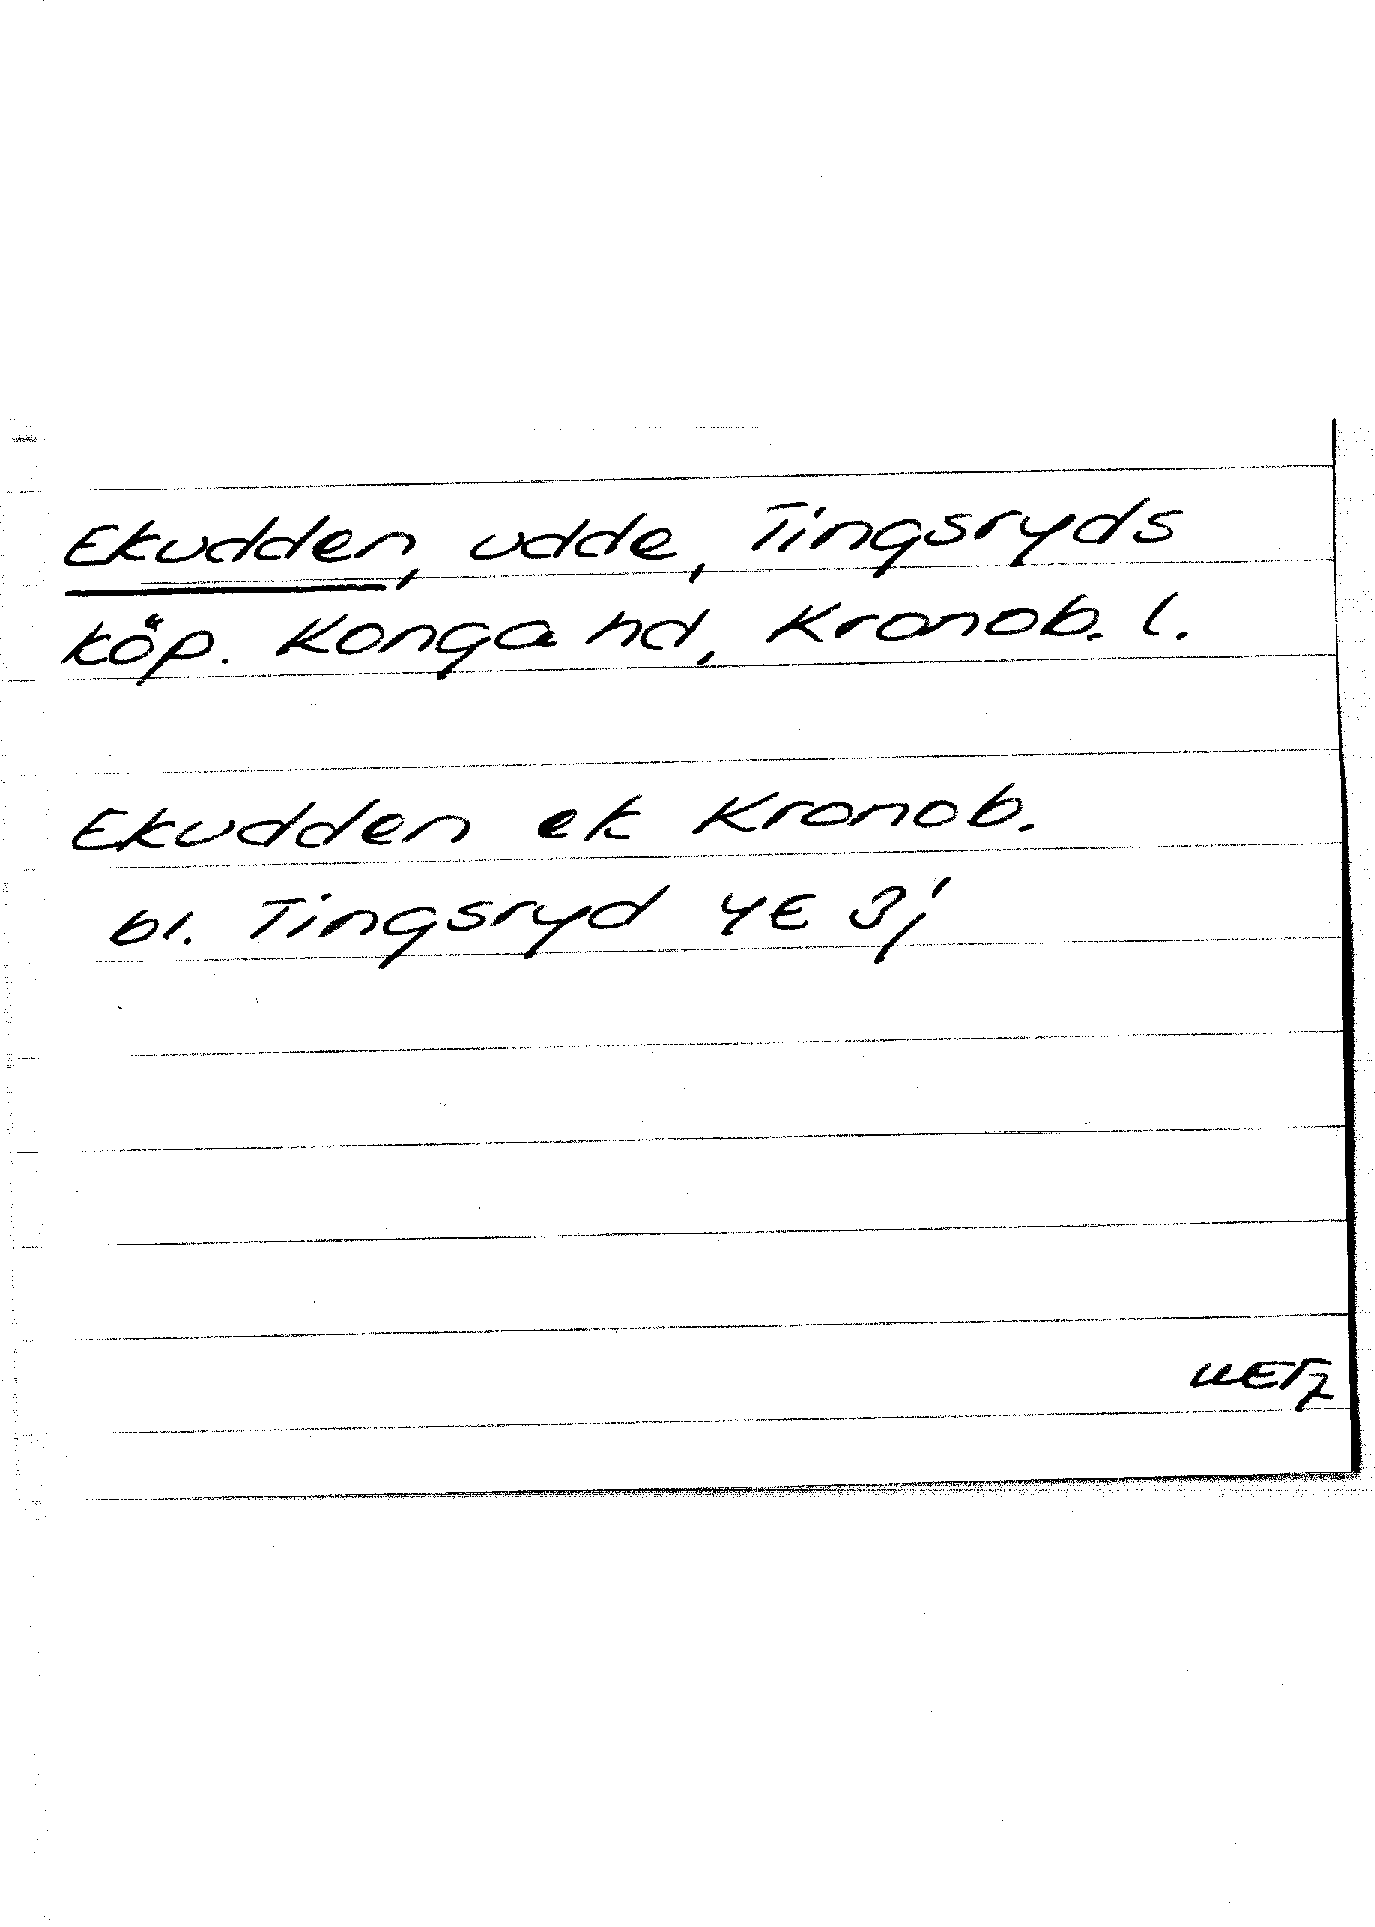 Ekudden, udde, Tingsryds
köp. Konga hd, Kronob. l.
Ekudden ek Kronob.
bl. Tingsryd 4E 3j